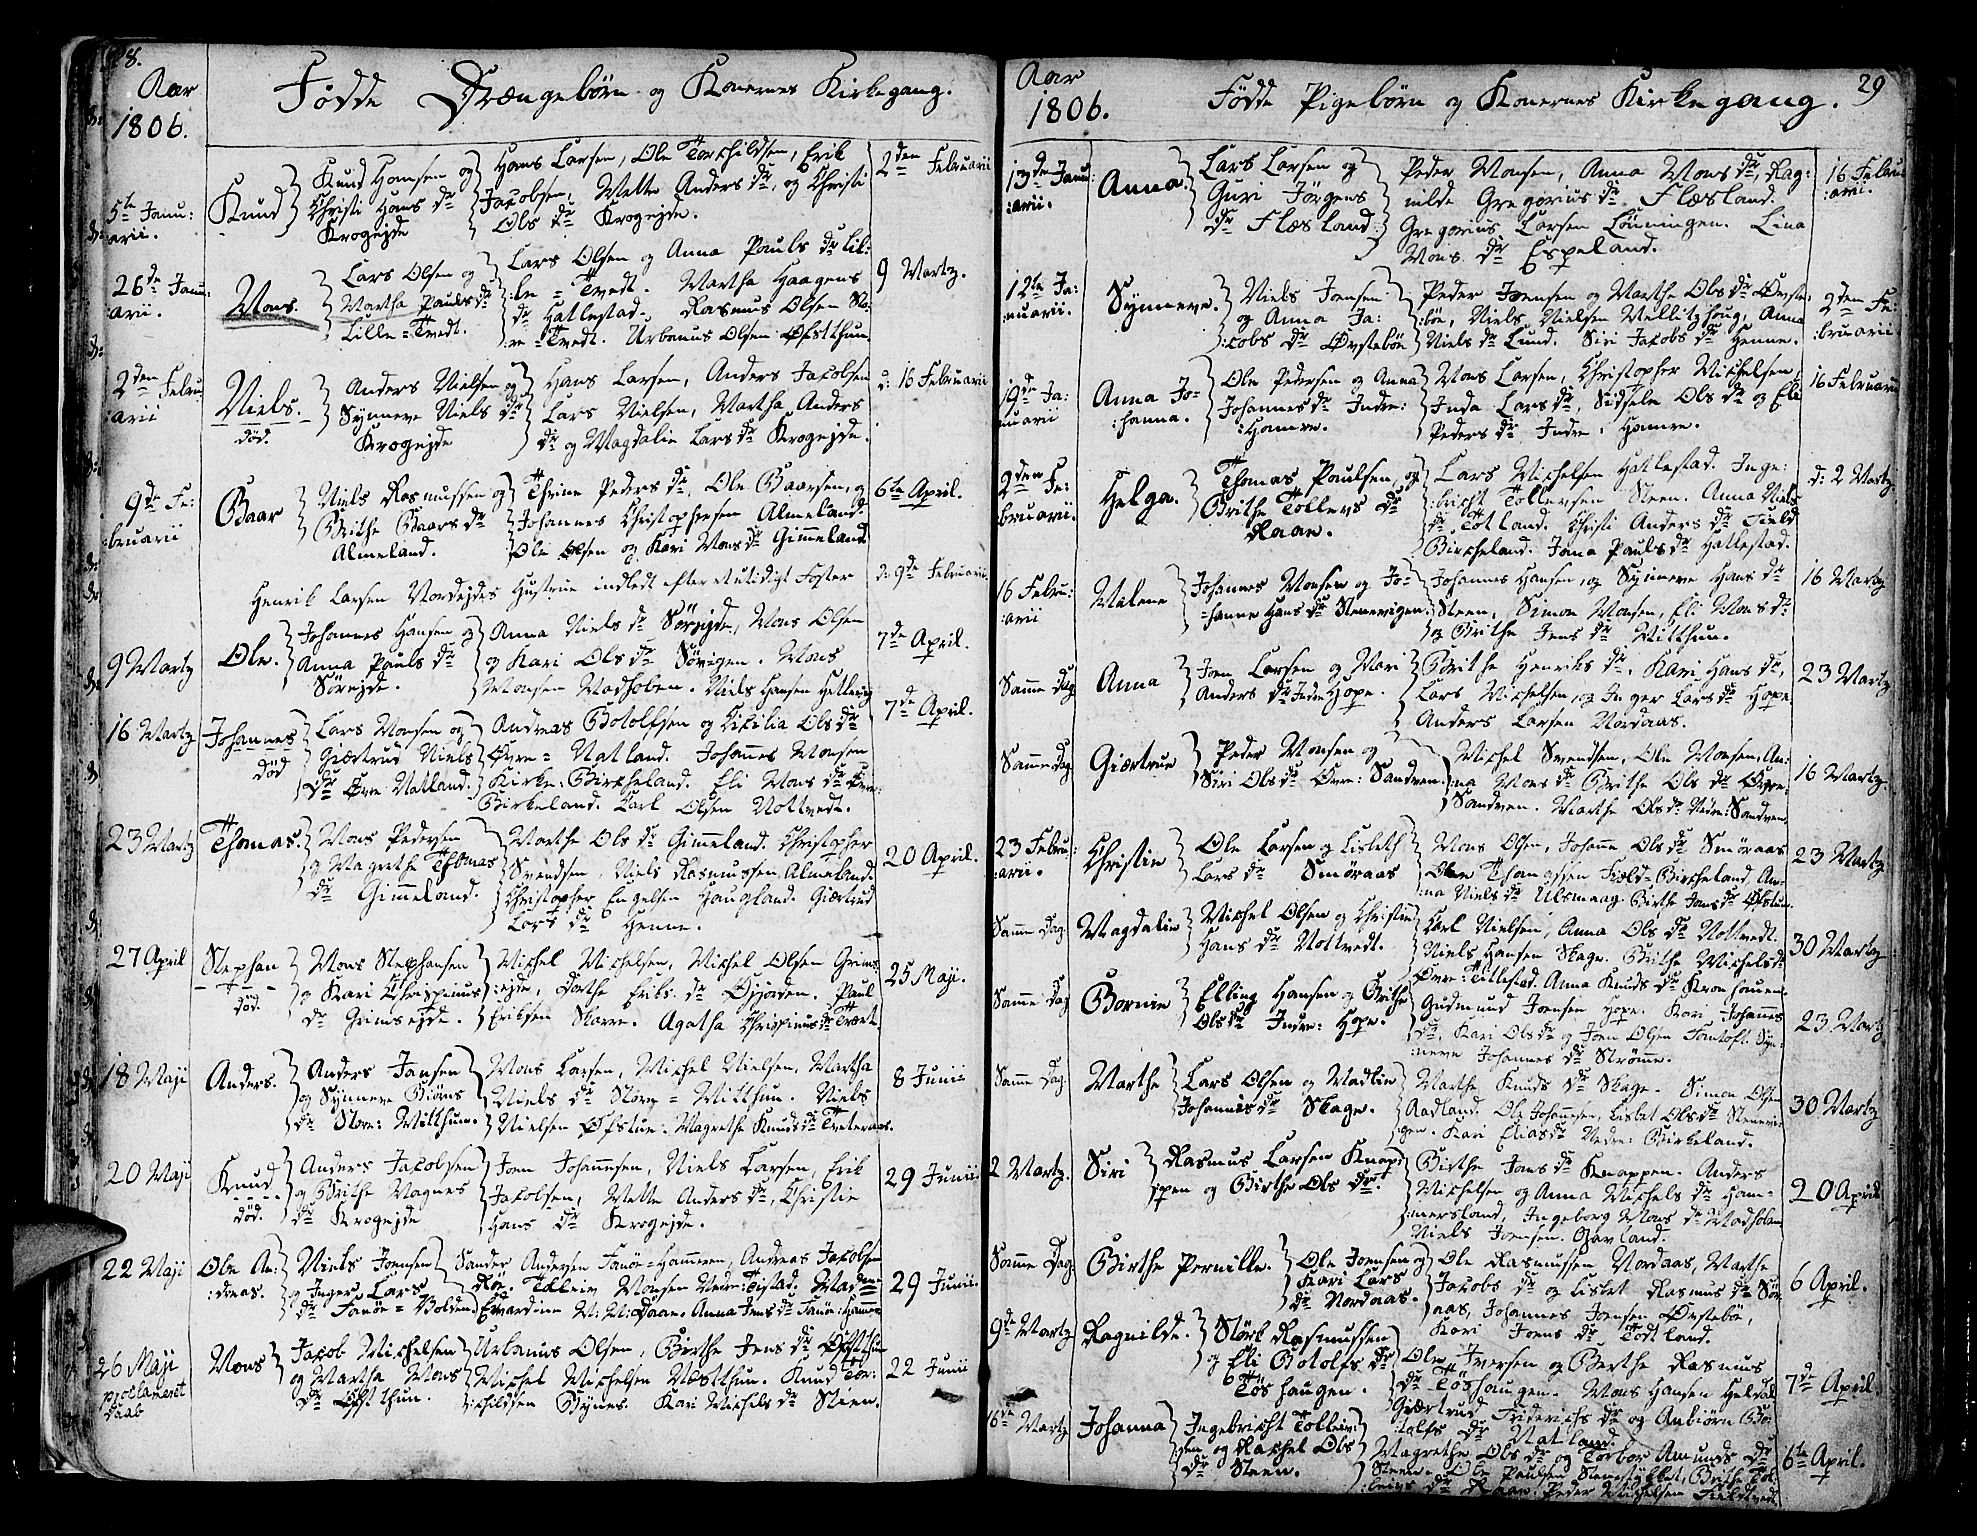 28.
Aar
1806.
Fødde Drængebørn og Konernes Kirkegang.
5te Janu:
arii.
Knud
Knud Hansen og
Christi Hans dr
Krogejde
Hans Larsen, Ole Torchildsen, Erik
Jacobsen, Mette Anders dr, og Christi
Ols dr Krogejde.
2den Februarii
26de Janu:
arii.
Mons.
Lars Olsen og
Martha Pauls dr
Lille=Tvedt.
Lars Olsen og Anna Pauls dr Lil:
:le=Tvedt. Martha Haagens
dr Hatlestad. Rasmus Olsen Sto:
re=Tvedt. Urbanus Olsen Øfstthun.
9 Martz.
2den Febru:
arii
Niels.
død.
Anders Nielsen og
Synneve Niels dr
Krogejde
Hans Larsen, Anders Jacobsen
Lars Nielsen, Martha Anders
dr og Magdalin Lars dr Krogejde.
d: 16 Februarii
9de Fe:
bruarii
Baar
Niels Rasmussen og
Brithe Baars dr
Almeland.
Thrine Peders dr, Ole Baarsen, og
Johannes Christophersen Almeland.
Ole Olsen og Kari Mons dr Gimmeland
6te April.
Henrik Larsen Nordejdes Hustrue indledt efter et utidigt Foster
d: 9de Februarii.
9 Martz
Ole.
Johannes Hansen og
Anna Pauls dr
Sørejde.
Anna Niels dr Sørejde, Mons Olsen
og Kari Ols dr Sørigen. Mons
Monsen Madshoben. Niels Hansen Hetlevig
7de April.
16 Martz
Johannes
død
Lars Monsen og
Giertrud Niels
dr Øvre Natland.
Andreas Botolfsen og Cicilia Ols dr
Øvre=Natland. Johannes Monsen
Kirke:Bircheland. Eli Mons dr Øvre:
Birkeland. Carl Olsen Nottvedt.
7de April.
23 Martz
Thomas.
Mons Pedersen
og Magrethe Thomas
dr Gimmeland.
Marthe Ols dr Gimmeland. Christopher
Svendsen, Niels Rasmussen, Almeland.
Christopher Engelsen Haugland. Giærtrud
Lars dr Henne.
20 April.
27 April
Stephan
død.
Mons Stephansen
og Kari Chrispinus
dr Grimsejde.
Michel Michelsen, Michel Olsen Grims:
ejde, Dorthe Eriks dr Øjjorden. Paul
Eriksen Skarre. Agatha Chrispinus dr Tvært.
25 Maji.
18 Maji
Anders.
Anders Jansen
og Synneve Biøns
dr Store: Milthun.
Mons Larsen, Michel Nielsen, Martha
Niels dr Store=Milthun. Niels
Nielsen Øfstun. Magrethe Knuds dr Tveteraas.
8 Junii
20 Maji
Knud
død.
Anders Jacobsen
og Brithe Magnes
dr Krogejde
Joen Johannesen, Niels Larsen, Erik
Jacobsen, Mette Anders dr, Christie
Hans dr Krogejde.
29 Junii
22 Maji
Ole An:
:dreas.
Niels Joensen
og Inger Lars
dr Fanøe=Bolden
Sander Andersen Fanøe=Hammeren, Andreas Jacobsen
Røe. Tolleiv Monsen Nedre:Tistad. Madme
Edvardine M: M: Daae. Anna Jens dr Fanøe:Hamre
29 Junii
26 Maji
proclameret
daab
Mons
Jacob Michelsen
og Martha Mons
dr Øfstthun.
Urbanus Olsen, Birthe Jens dr Øfstthun
Michel Michelsen Midtthun. Knud Tor:
:childsen Bynes. Kari Michels dr Steen.
22 Junii
Aar
1806.
Fødde Pigebørn og Konernes Kirkegang.
29
13de Janu:
:arii.
Anna.
Lars Larsen og
Guri Jørgens
dr Flæsland
Peder Monsen, Anna Mons dr, Rag:
nilde Gregorius dr Flæsland.
Gregorius Larsen Lønningen. Lina
Mons dr Espeland.
16 Febru
:arii.
12te Ja:
nuarii.
Synneve.
Niels Joensen
og Anna Ja:
:cobs dr Øvstebøe
Peder Joensen og Marthe Ols dr Øvste:
:bøe, Niels Nielsen Mellitzhoug, Anna
Niels dr Lund. Siri Jacobs dr Henne.
2den Fe:
bruarii
19de Ja:
nuarii
Anna Jo:
:hanna.
Ole Pedersen og Anna
Johannes dr Indre:
:Hamre.
Mons Larsen, Christopher Michelsen,
Inda Lars dr, Sidsele Ols dr og Eli
Peders dr Indre: Hamre.
16 Februarii
2den Fe:
bruarii.
Helga.
Thomas Paulsen, og
Brithe Tollevs dr
Raan.
Lars Michelsen Hatlestad. Inge:
:bricht Tollevsen Steen. Anna Niels
dr Totland. Christi Anders dr Field
Bircheland. Jana Pauls dr Hatlestad.
d: 2 Martz
16 Febru:
:arii
Malene
Johannes Monsen og Jo=
=hanne Hans dr Stenevigen.
Johannes Hansen, og Synneve Hans dr
Steen, Simon Monsen, Eli Mons dr
og Brithe Jens dr Milthun.
16 Martz
Samme Dag
Anna
Joen Larsen og Mari
Anders dr Indre Hope.
Brithe Henriks dr, Kari Hans dr,
Lars Michelsen, og Inger Lars dr Hope
Anders Larsen Nordaas.
23 Martz
Samme Dag
Giærtrue
Peder Monsen og
Siri Ols dr Øvre: Sandven.
Michel Svendsen, Ole Monsen, An:
:na Mons dr Brithe Ols dr Øvre:
Sandven. Marthe Ols dr Nedre:Sandven.
16 Martz.
23 Febru:
:arii.
Christin
Ole Larsen og Lisbeth
Lars dr Smøraas
Mons Olsen, Johanne Ols dr Smøraas
Ole Thomassen Field=Bircheland, An:
:na Niels dr Ulsmaag. Birthe Jons dr Øfstun.
23 Martz.
Samme Dag
Magdalin
Michel Olsen og Christin
Hans dr Nottvedt.
Carl Nielsen, Anna Ols dr Nottvedt.
Niels Hansen Skage. Brithe Michels dr
Øvre:Titlestad. Anna Knuds dr Kronhouen.
30 Martz
Samme Dag
Bornin
Elling Hansen og Brithe
Ols dr Indre: Hope.
Gudmund Joensen Hope. Kari Johannes
dr, Kari Ols dr og Joen Olsen Tontoft. Syn:
:neve Johannes dr Strømme.
23 Martz
Samme Dag
Marthe
Lars Olsen og Madlin
Johannes dr Skage.
Marthe Knuds dr Skage. Simon Olsen
Aadland. Ole Johannesen, Lisbet Ols dr Stenevi:
gen. Kari Elias dr Nedre: Birkeland.
30 Martz
2 Martz.
Siri
Rasmus Larsen Knap:
pen og Birthe Ols dr.
Birthe Jons dr Knappen. Anders
Michelsen og Anna Michels dr Ham=
:mersland, Ingeborg Mons dr Madshoben,
Niels Joensen. Gavland.
20 April
Samme Dag
Birthe Pernille.
Ole Joensen og
Kari Lars
dr Nordaas.
Ole Rasmussen Nordaas, Marthe
Jacobs dr og Lisbet Rasmus dr Sør
aas, Johannes Joensen Øvstebø,
Kari Joens dr Todtland.
6 April.
9de Martz
Ragnilde.
Størk Rasmussen
og Eli Botolfs dr
Tøshaugen.
Ole Iversen og Berthe Rasmus
dr Tøshaugen. Mons Hansen Heldal
Giærtrud Friderichs dr og Anbiørn Bo:
:tolfs dr Natland.
7de April.
16de Martz
Johanna
Ingebricht Tolleiv:
sen og Rachel Ols
dr Steen.
Magrethe Ols dr og Torbor Amunds dr
Steen. Ole Paulsen Stenestykket, Brithe Tol:
:leivs dr Raan. Peder Michelsen Fieldtvedt.
6te April.